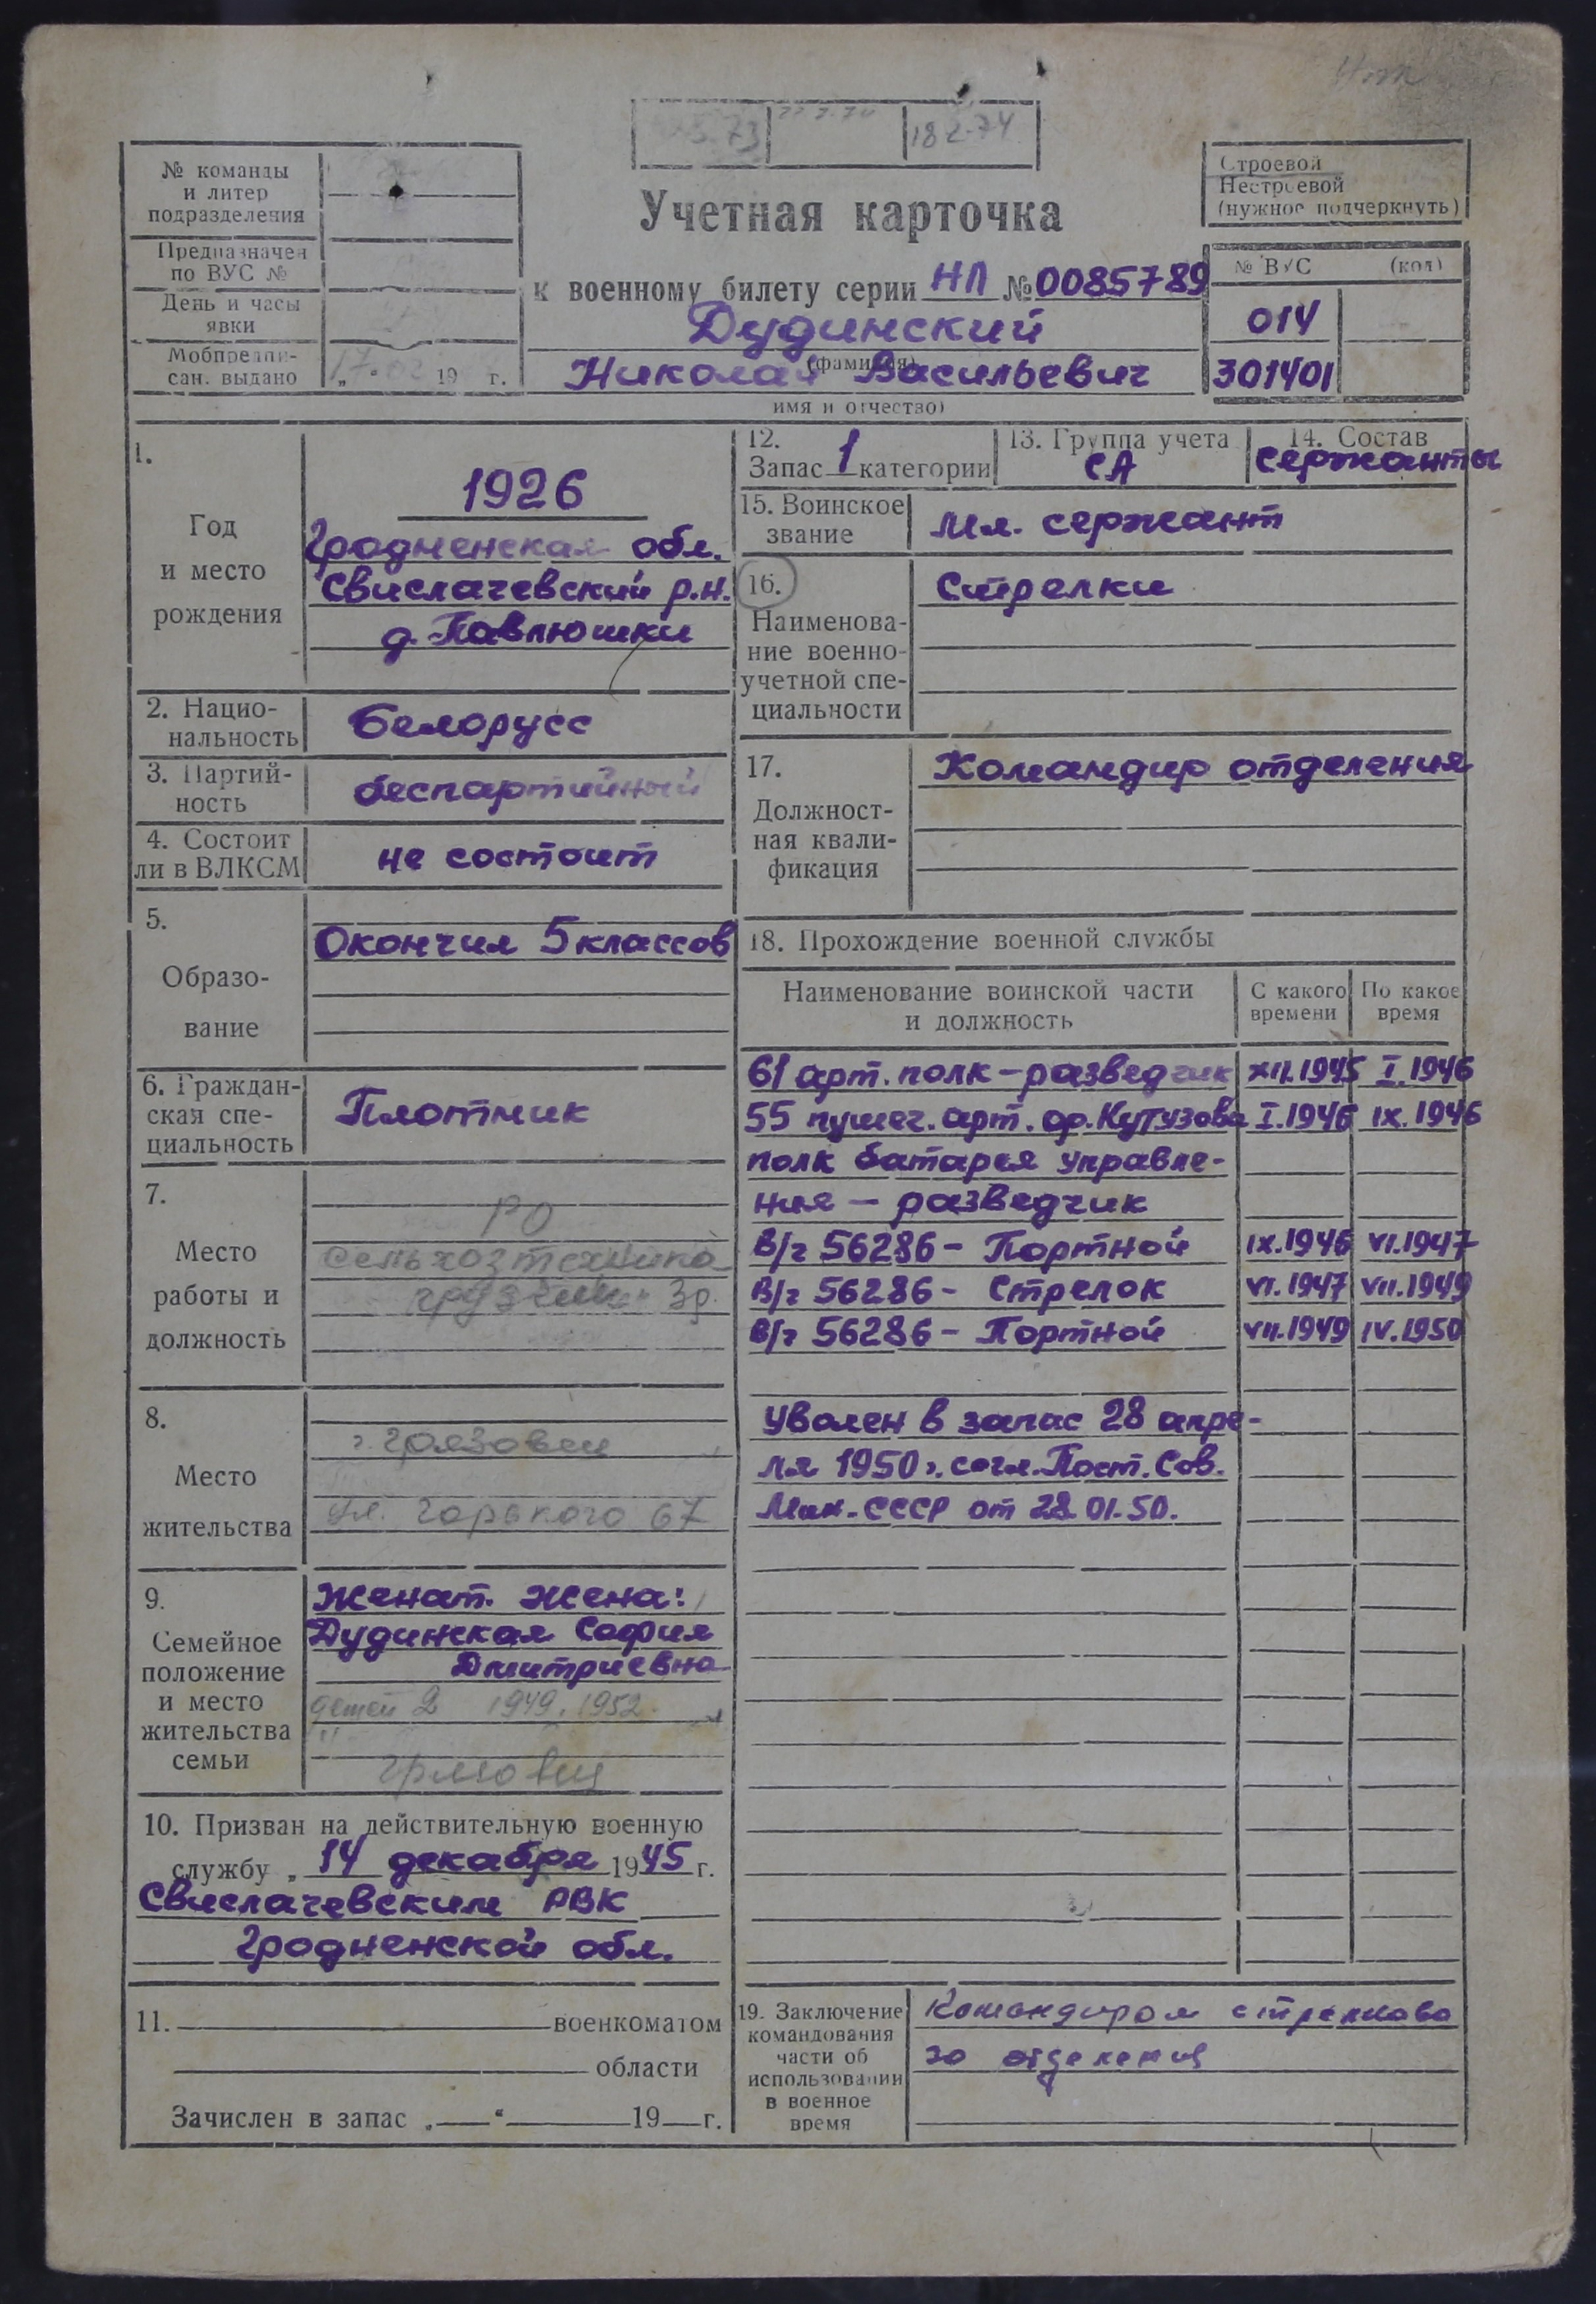 18.2.74
№ команды
и литер
подразделения
Предназначен
по ВУС №
День и часы
явки
Мобпредпи-
сан. выдано
„ “ 19 г.
Строевой
Нестроевой
(нужное подчеркнуть)
Учетная карточка
к военному билету серии НЛ № 0085789
Дудинский
(фамилия)
Николай Васильевич
имя и отчество)
№ ВУС (код)
014
301401
1.
Год
и место
рождения
1926
Гродненская обл.
Свислачевский р.н.
д. Павлюшки
2. Нацио-
нальность
Белорусс
3. Партий-
ность
беспартийный
4. Состоит
ли в ВЛКСМ
не состоит
5.
Образо-
вание
Окончил 5 классов
6. Граждан-
ская спе-
циальность
Плотник
7.
Место
работы и
должность
РО
Сельхозтехника
грузчик 3р.
8.
Место
жительства
г. Грязовец
ул. Горького 67
9.
Семейное
положение
и место
жительства
семьи
Женат. Жена:
Дудинская София
Дмитриевна
детей 2 1949, 1952.
10. Призван на действительную военную
службу „ 14 декабря 1945 г.
Свислачевским РВК
Гродненской обл.
11. военкоматом
области
Зачислен в запас „ “ 19 г.
12.
Запас 1 категории
13. Группа учета
СА
14. Состав
Сержанты
15. Воинское
звание
Мл. сержант
16.
Наименова-
ние военно-
учетной спе-
циальности
Стрелки
17.
Должност-
ная квали-
фикация
Командир отделения
18. Прохождение военной службы
Наименование воинской части
и должность
С какого
времени
По какое
время
61 арт. полк – разведчик XII.1945 I.1946
55 пушеч. арт. ор. Кутузова I.1946 IX.1946
полк батарея управле-
ния – разведчик
В/ч 56286 – Портной IX.1946 VI.1947
В/ч 56286 – Стрелок VI.1947 VII.1949
В/ч 56286 – Портной VII.1949 IV.1950
Уволен в запас 28 апре-
ля 1950 г. согл. Пост. Сов.
Мин. СССР от 28.01.50.
19. Заключение
командования
части об
использовании
в военное
время
Командиром стрелково
го отделения